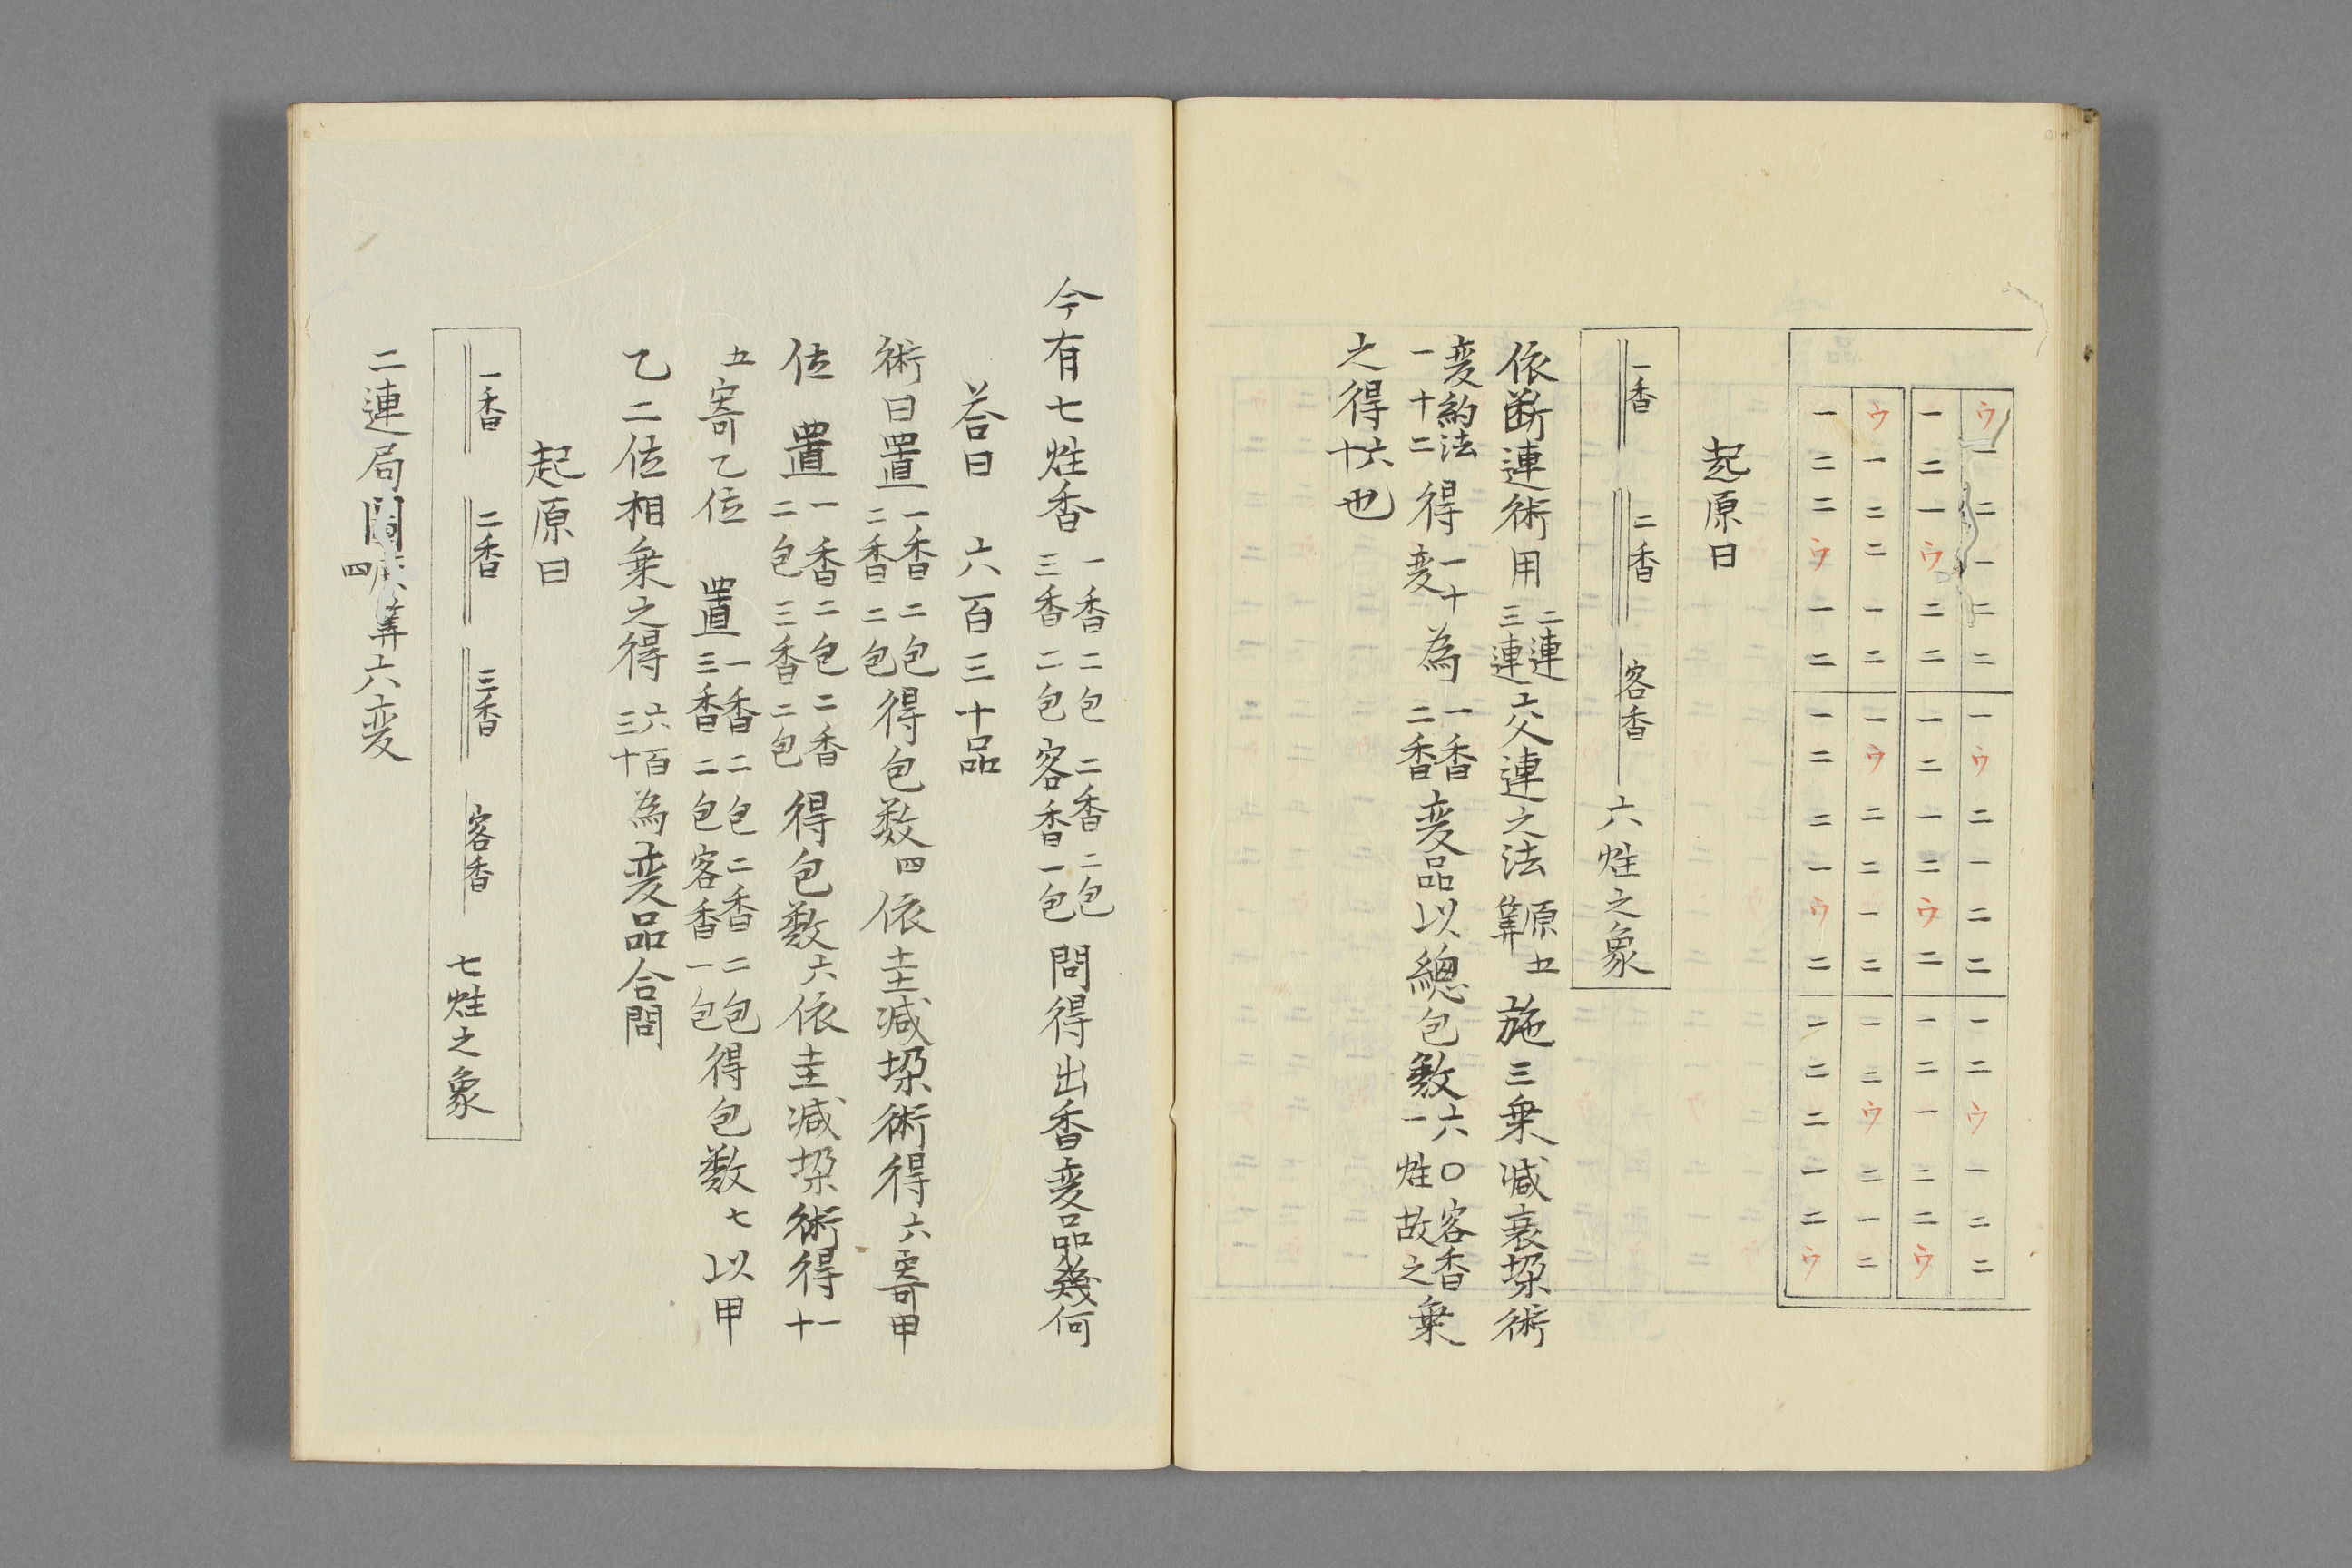 ウ一二一二二一ウ二一二二一二ウ一二二
一二一ウ二二一二一二ウ二一二一二二ウ
ウ一二二一二一ウ二二一二一二ウ二一二
一二二ウ一二一二二一ウ二一二二一二ウ
起原曰
一香 二香 客香 六炷之象
依断連術用二連三連交連之法原五筭施三乗減衰垜術
変約法一十二得一十変為一香二香変品以總包数六〇客香一炷故之乗
之得六十也
今有七炷香一香二包二香二包三香二包客香一包問得出香変品幾何
荅曰 六百三十品
術曰置一香二包二香二包得包数四依圭減垜術得六寄甲
位 置一香二包二香二包三香二包得包数六依圭減垜術得一十
五寄乙位 置一香二包二香二包三香二包客香一包得包数七以甲
乙二位相乗之得六百三十為変品合問
起原曰
一香 二香 三香 客香 七炷之象
二連局原四筭六変